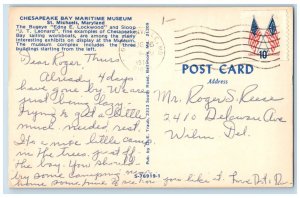 CHESAPEAKE BAY MARITIME MUSEUM
St. Michaels, Maryland
The Bugeye "Edna E. Lockwood" and Sloop
"J. T. Leonard", fine examples of Chesapeake
Bay sailing workboats, are among the many
interesting exhibits on display at the Museum.
The museum complex includes the three
buildings starting from the left.
10¢
POST CARD
Address
Dear Roger &
Already 4 days
have gone by. We are
just
trying to get a little
much needed rest.
It's a nice little camp
in the trees just off
the bay. You should
try some camping in
home some time to see how you like it. Love Dot &
Mr. Roger S. Reese
2410 Delaware Ave
Wilm Del.
S-76919-1